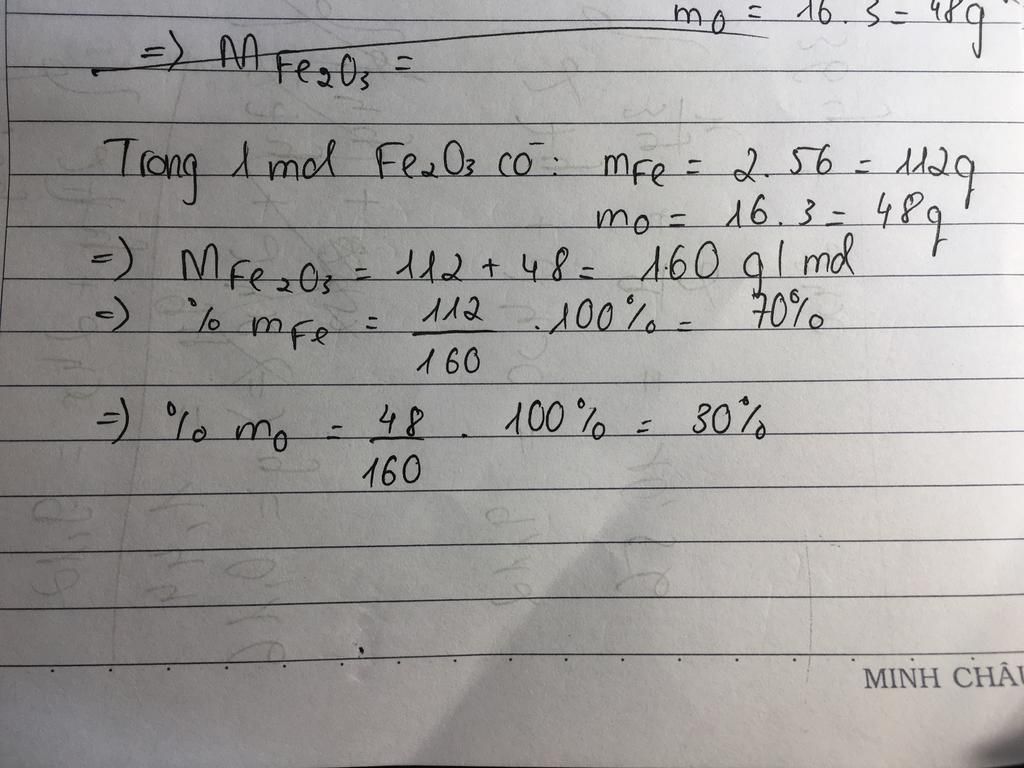 m_O = 16 . 3 = 48g
=) M_Fe₂O₃ =
Trong 1 mol Fe₂O₃ có: m_Fe = 2 . 56 = 112g
m_O = 16 . 3 = 48g
=) M_Fe₂O₃ = 112 + 48 = 160 g/mol
=) % m_Fe = 112/160 . 100% = 70%
=) % m_O = 48/160 . 100% = 30%
MINH CHÂU